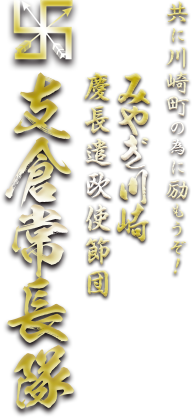 共に川崎町の為に励もうぞ！
みやぎ川崎
慶長遣欧使節団
支倉常長隊